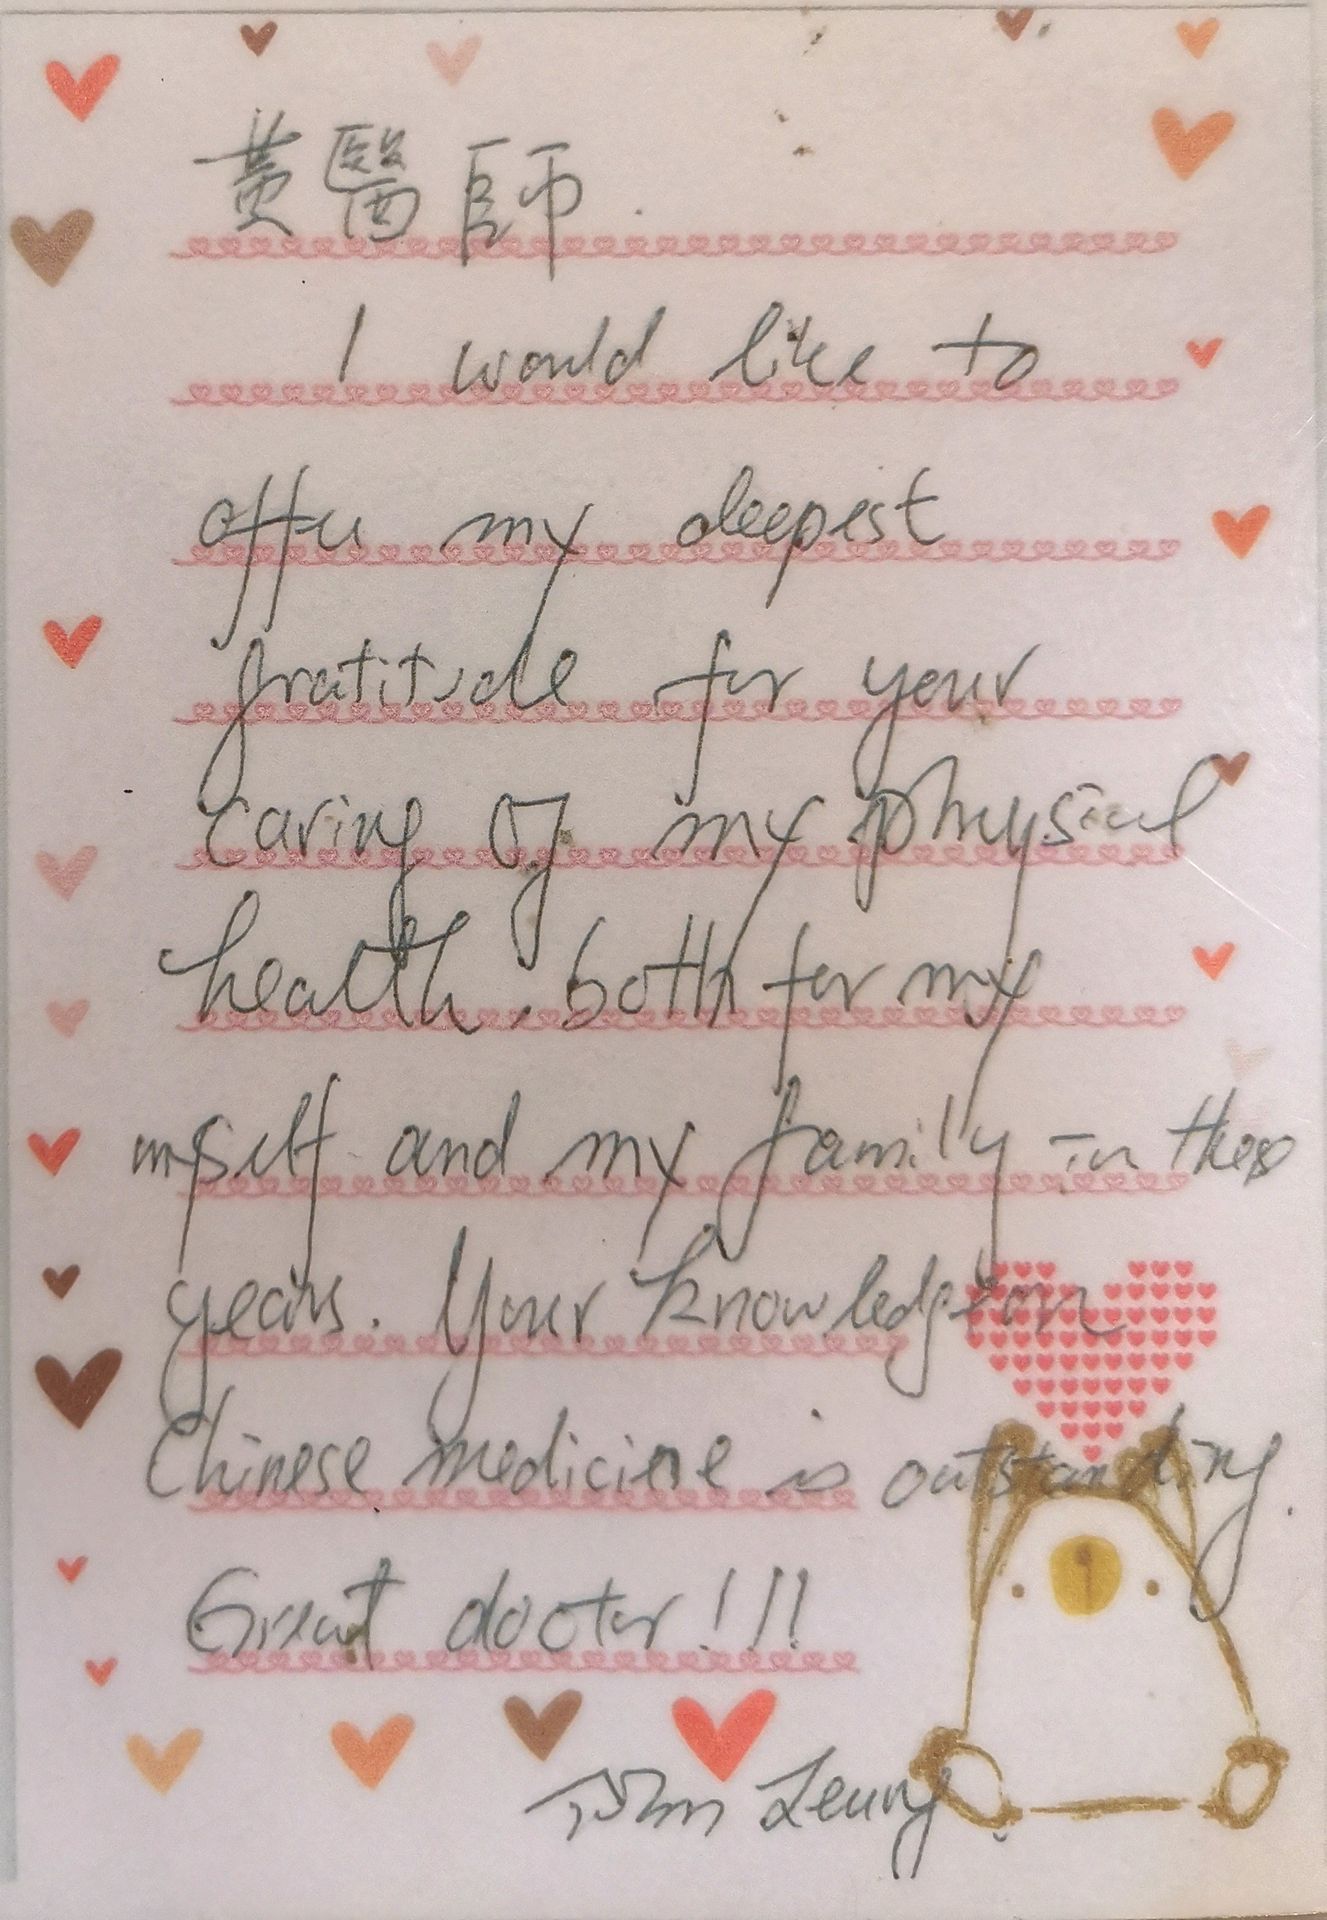 黃醫師.
I would like to
offer my deepest
gratitude for your
caring of my physical
health, both for my
myself and my family in these
years. Your knowledge on
Chinese medicine is outstanding.
Great doctor!!!
John Leung